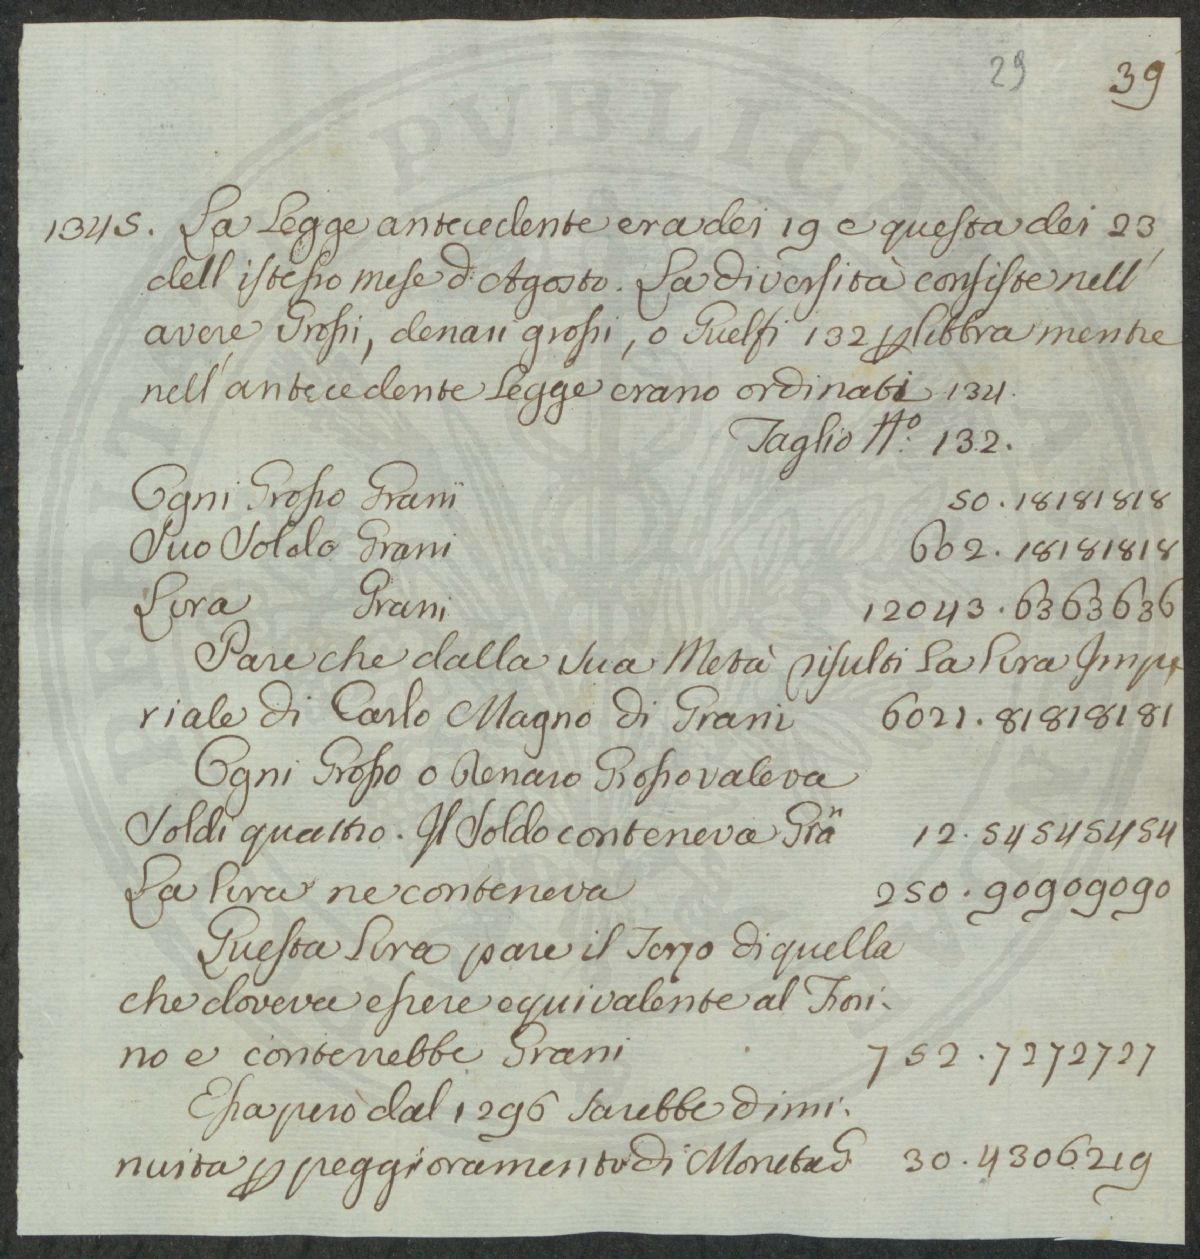 29 39
1345. La Legge antecedente era dei 19 e questa dei 23
dell'istesso mese d'Agosto. La diversità consiste nell'
avere Grossi, denari grossi, o Guelfi 132 p libbra mentre
nell'antecedente Legge erano ordinati 134.
Taglio N.º 132.
Ogni Grosso Grani 50.18181818
Suo Soldo Grani 602.18181818
Lira Grani 12043.63636363
Pare che dalla sua Metà risulti la Lira Impe
riale di Carlo Magno di Grani 6021.81818181
Ogni Grosso o Denaro Grosso valeva
Soldi quattro. Il Soldo conteneva Grã 12.54545454
La Lira ne conteneva 250.90909090
Questa Lira pare il Terzo di quella
che doveva essere equivalente al Fiori-
no e conterrebbe Grani 752.7272727
Essa però dal 1296 sarebbe dimi-
nuita p peggioramento di Moneta G 30.4306219